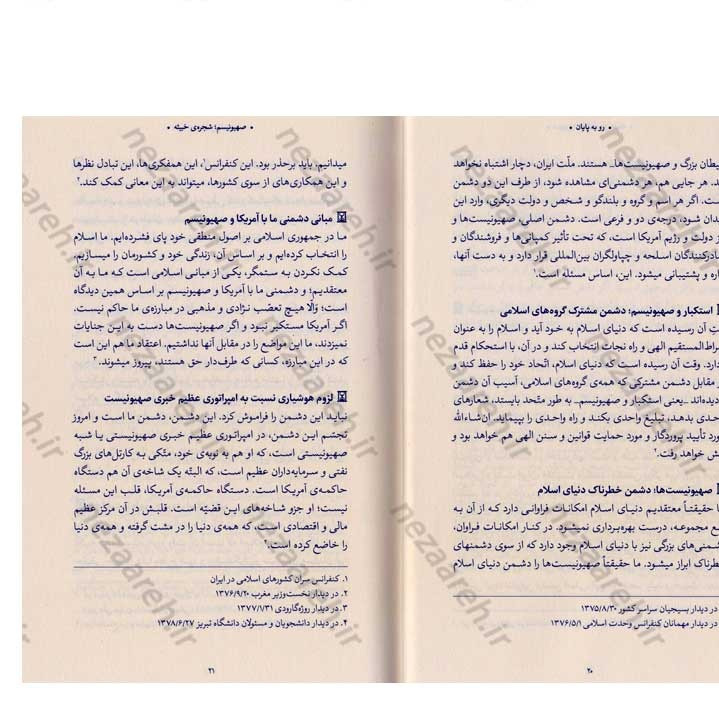 • رو به پایان •
بزرگ و صهیونیست‌ها_ هستند. ملّت ایران، دچار اشتباه نخواهد
هر جایی هم، هر دشمنی‌ای مشاهده شود، از طرف این دو دشمن
اگر هر اسم و گروه و بلندگو و شخص و دولت دیگری، وارد این
شود، درجه‌ی دو و فرعی است. دشمن اصلی، صهیونیست‌ها و
دولت و رژیم آمریکا است، که تحت تأثیر کمپانی‌ها و فروشندگان و
اسلحه و چپاولگران بین‌المللی قرار دارد و به دست آنها،
و پشتیبانی میشود. این، اساس مسئله است.۱
استکبار و صهیونیسم؛ دشمن مشترک گروه‌های اسلامی
آن رسیده است که دنیای اسلام به خود آید و اسلام را به عنوان
الهی و راه نجات انتخاب کند و در آن، با استحکام قدم
وقت آن رسیده است که دنیای اسلام، اتّحاد خود را حفظ کند و
مقابل دشمن مشترکی که همه‌ی گروه‌های اسلامی، آسیب آن دشمن
_یعنی استکبار و صهیونیسم_ به طور متّحد بایستد، شعارهای
بدهد، تبلیغ واحدی بکند و راه واحدی را بپیماید. ان‌شاءالله
تأیید پروردگار و مورد حمایت قوانین و سنن الهی هم خواهد بود و
خواهد رفت.۲
صهیونیست‌ها؛ دشمن خطرناک دنیای اسلام
حقیقتاً معتقدیم دنیای اسلام امکانات فراوانی دارد که از آن به
مجموعه، درست بهره‌برداری نمیشود. در کنار امکانات فراوان،
بزرگی نیز با دنیای اسلام وجود دارد که از سوی دشمنهای
ابراز میشود. ما حقیقتاً صهیونیست‌ها را دشمن دنیای اسلام
در دیدار بسیجیان سراسر کشور ۱۳۷۵/۸/۳۰
در دیدار مهمانان کنفرانس وحدت اسلامی ۱۳۷۶/۵/۱
۲۰
• صهیونیسم؛ شجره‌ی خبیثه •
میدانیم. باید برحذر بود. این کنفرانس۱، این همفکری‌ها، این تبادل نظرها
و این همکاری‌های از سوی کشورها، میتواند به این معانی کمک کند.۲
مبانی دشمنی ما با آمریکا و صهیونیسم
ما در جمهوری اسلامی بر اصول منطقی خود پای فشرده‌ایم. ما اسلام
را انتخاب کرده‌ایم و بر اساس آن، زندگی خود و کشورمان را میسازیم.
کمک نکردن به ستمگر، یکی از مبانی اسلامی است که ما به آن
معتقدیم؛ و دشمنی ما با آمریکا و صهیونیسم بر اساس همین دیدگاه
است؛ وَالّا هیچ تعصّب نژادی و مذهبی در مبارزه‌ی ما حاکم نیست.
اگر آمریکا مستکبر نبود و اگر صهیونیست‌ها دست به این جنایات
نمیزدند، ما این مواضع را در مقابل آنها نداشتیم. اعتقاد ما هم این است
که در این مبارزه، کسانی که طرف‌دار حق هستند، پیروز میشوند.۳
لزوم هوشیاری نسبت به امپراتوری عظیم خبری صهیونیست
نباید این دشمن را فراموش کرد. این دشمن، دشمن ما است و امروز
تجسّم این دشمن، در امپراتوری عظیم خبری صهیونیستی یا شبه
صهیونیستی است، که او هم به نوبه‌ی خود، متّکی به کارتل‌های بزرگ
نفتی و سرمایه‌داران عظیم است، که البتّه یک شاخه‌ی آن هم دستگاه
حاکمه‌ی آمریکا است. دستگاه حاکمه‌ی آمریکا، قلب این مسئله
نیست؛ او جزو شاخه‌های این قضیّه است. قلبش در آن مرکز عظیم
مالی و اقتصادی است، که همه‌ی دنیا را در مشت گرفته و همه‌ی دنیا
را خاضع کرده است.۴
۱. کنفرانس سران کشورهای اسلامی در ایران
۲. در دیدار نخست‌وزیر مغرب ۱۳۷۶/۹/۲۰
۳. در دیدار روژه‌گارودی ۱۳۷۷/۱/۳۱
۴. در دیدار دانشجویان و مسئولان دانشگاه تبریز ۱۳۷۸/۶/۲۷
۲۱
nezaareh.ir